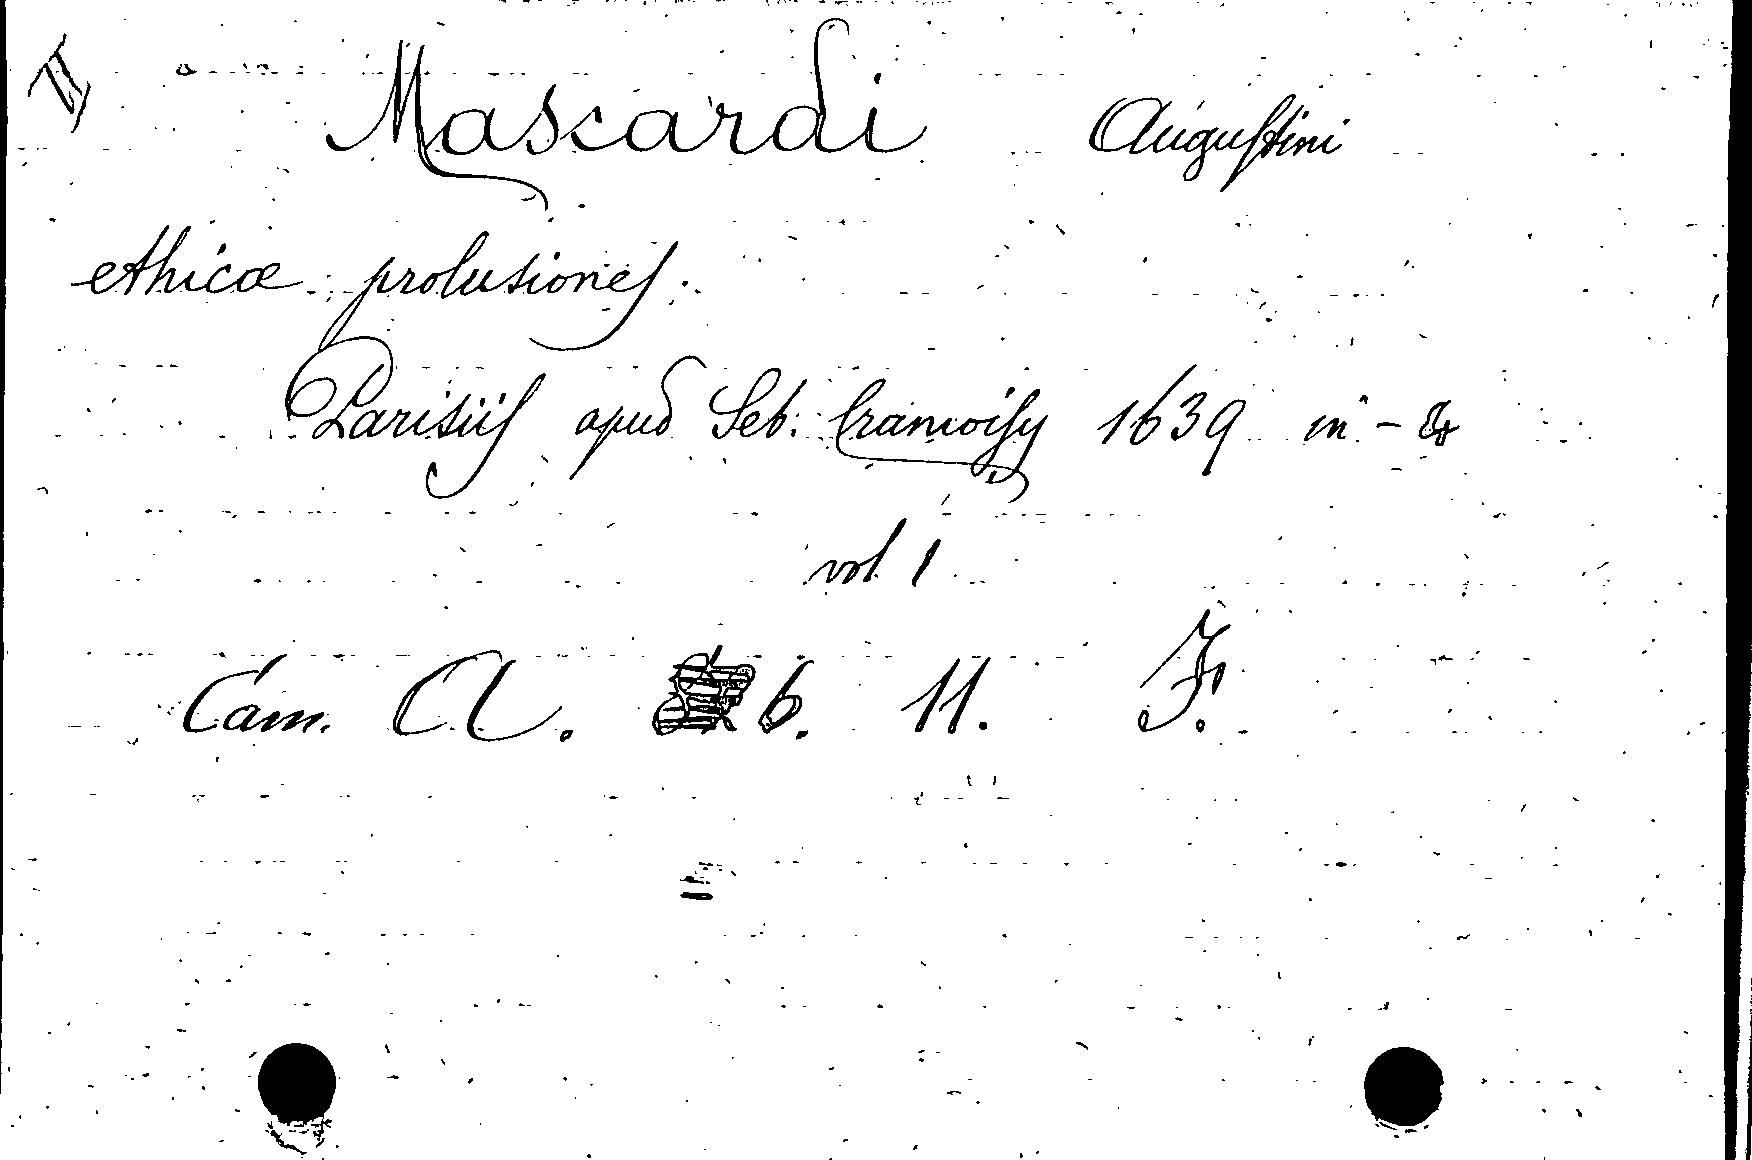 II
Mascardi Augustini
ethicæ prolusiones.
Parisiis apud Seb. Cramoisy 1639 in-4
vol. 1
Cam. A. 6. 11. F.